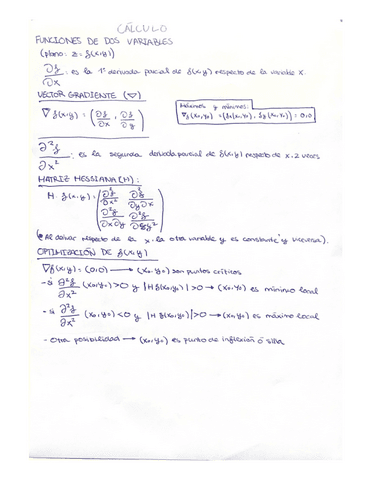 CÁLCULO
FUNCIONES DE DOS VARIABLES
(plano: z = f(x,y))
∂f/∂x : es la 1ª derivada parcial de f(x,y) respecto de la variable x.
VECTOR GRADIENTE (∇)
∇f(x,y) = (∂f/∂x , ∂f/∂y)
Máximos y mínimos:
∇f(x₀,y₀) = (fx(x₀,y₀), fy(x₀,y₀)) = 0,0
∂²f/∂x² : es la segunda derivada parcial de f(x,y) respecto de x 2 veces
MATRIZ HESSIANA (H):
H f(x,y) = (∂²f/∂x² ∂²f/∂y∂x
∂²f/∂x∂y ∂²f/∂y²)
(* Al derivar respecto de la x la otra variable y es constante y viceversa).
OPTIMIZACIÓN DE f(x,y)
∇f(x,y) = (0,0) → (x₀,y₀) son puntos críticos
- si ∂²f/∂x² (x₀,y₀) > 0 y |H f(x₀,y₀)| > 0 → (x₀,y₀) es mínimo local
- si ∂²f/∂x² (x₀,y₀) < 0 y |H f(x₀,y₀)| > 0 → (x₀,y₀) es máximo local
- Otra posibilidad → (x₀,y₀) es punto de inflexión ó silla